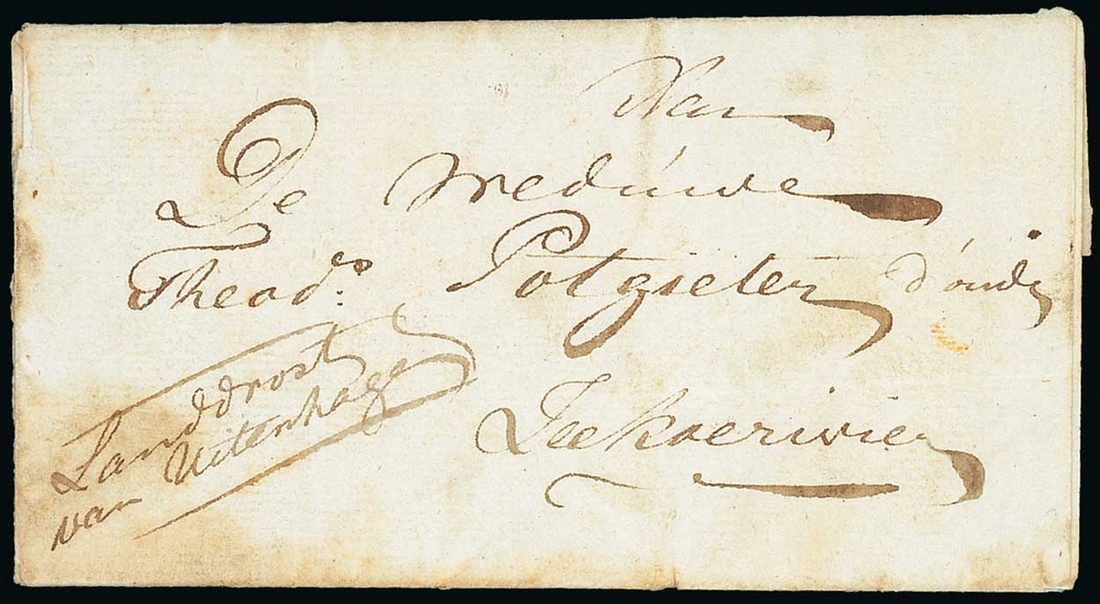 Aan
De Wedúwe
Theod.s Potgieter d'oúde
Zeekoerivier
Landdrost
van Uitenhage